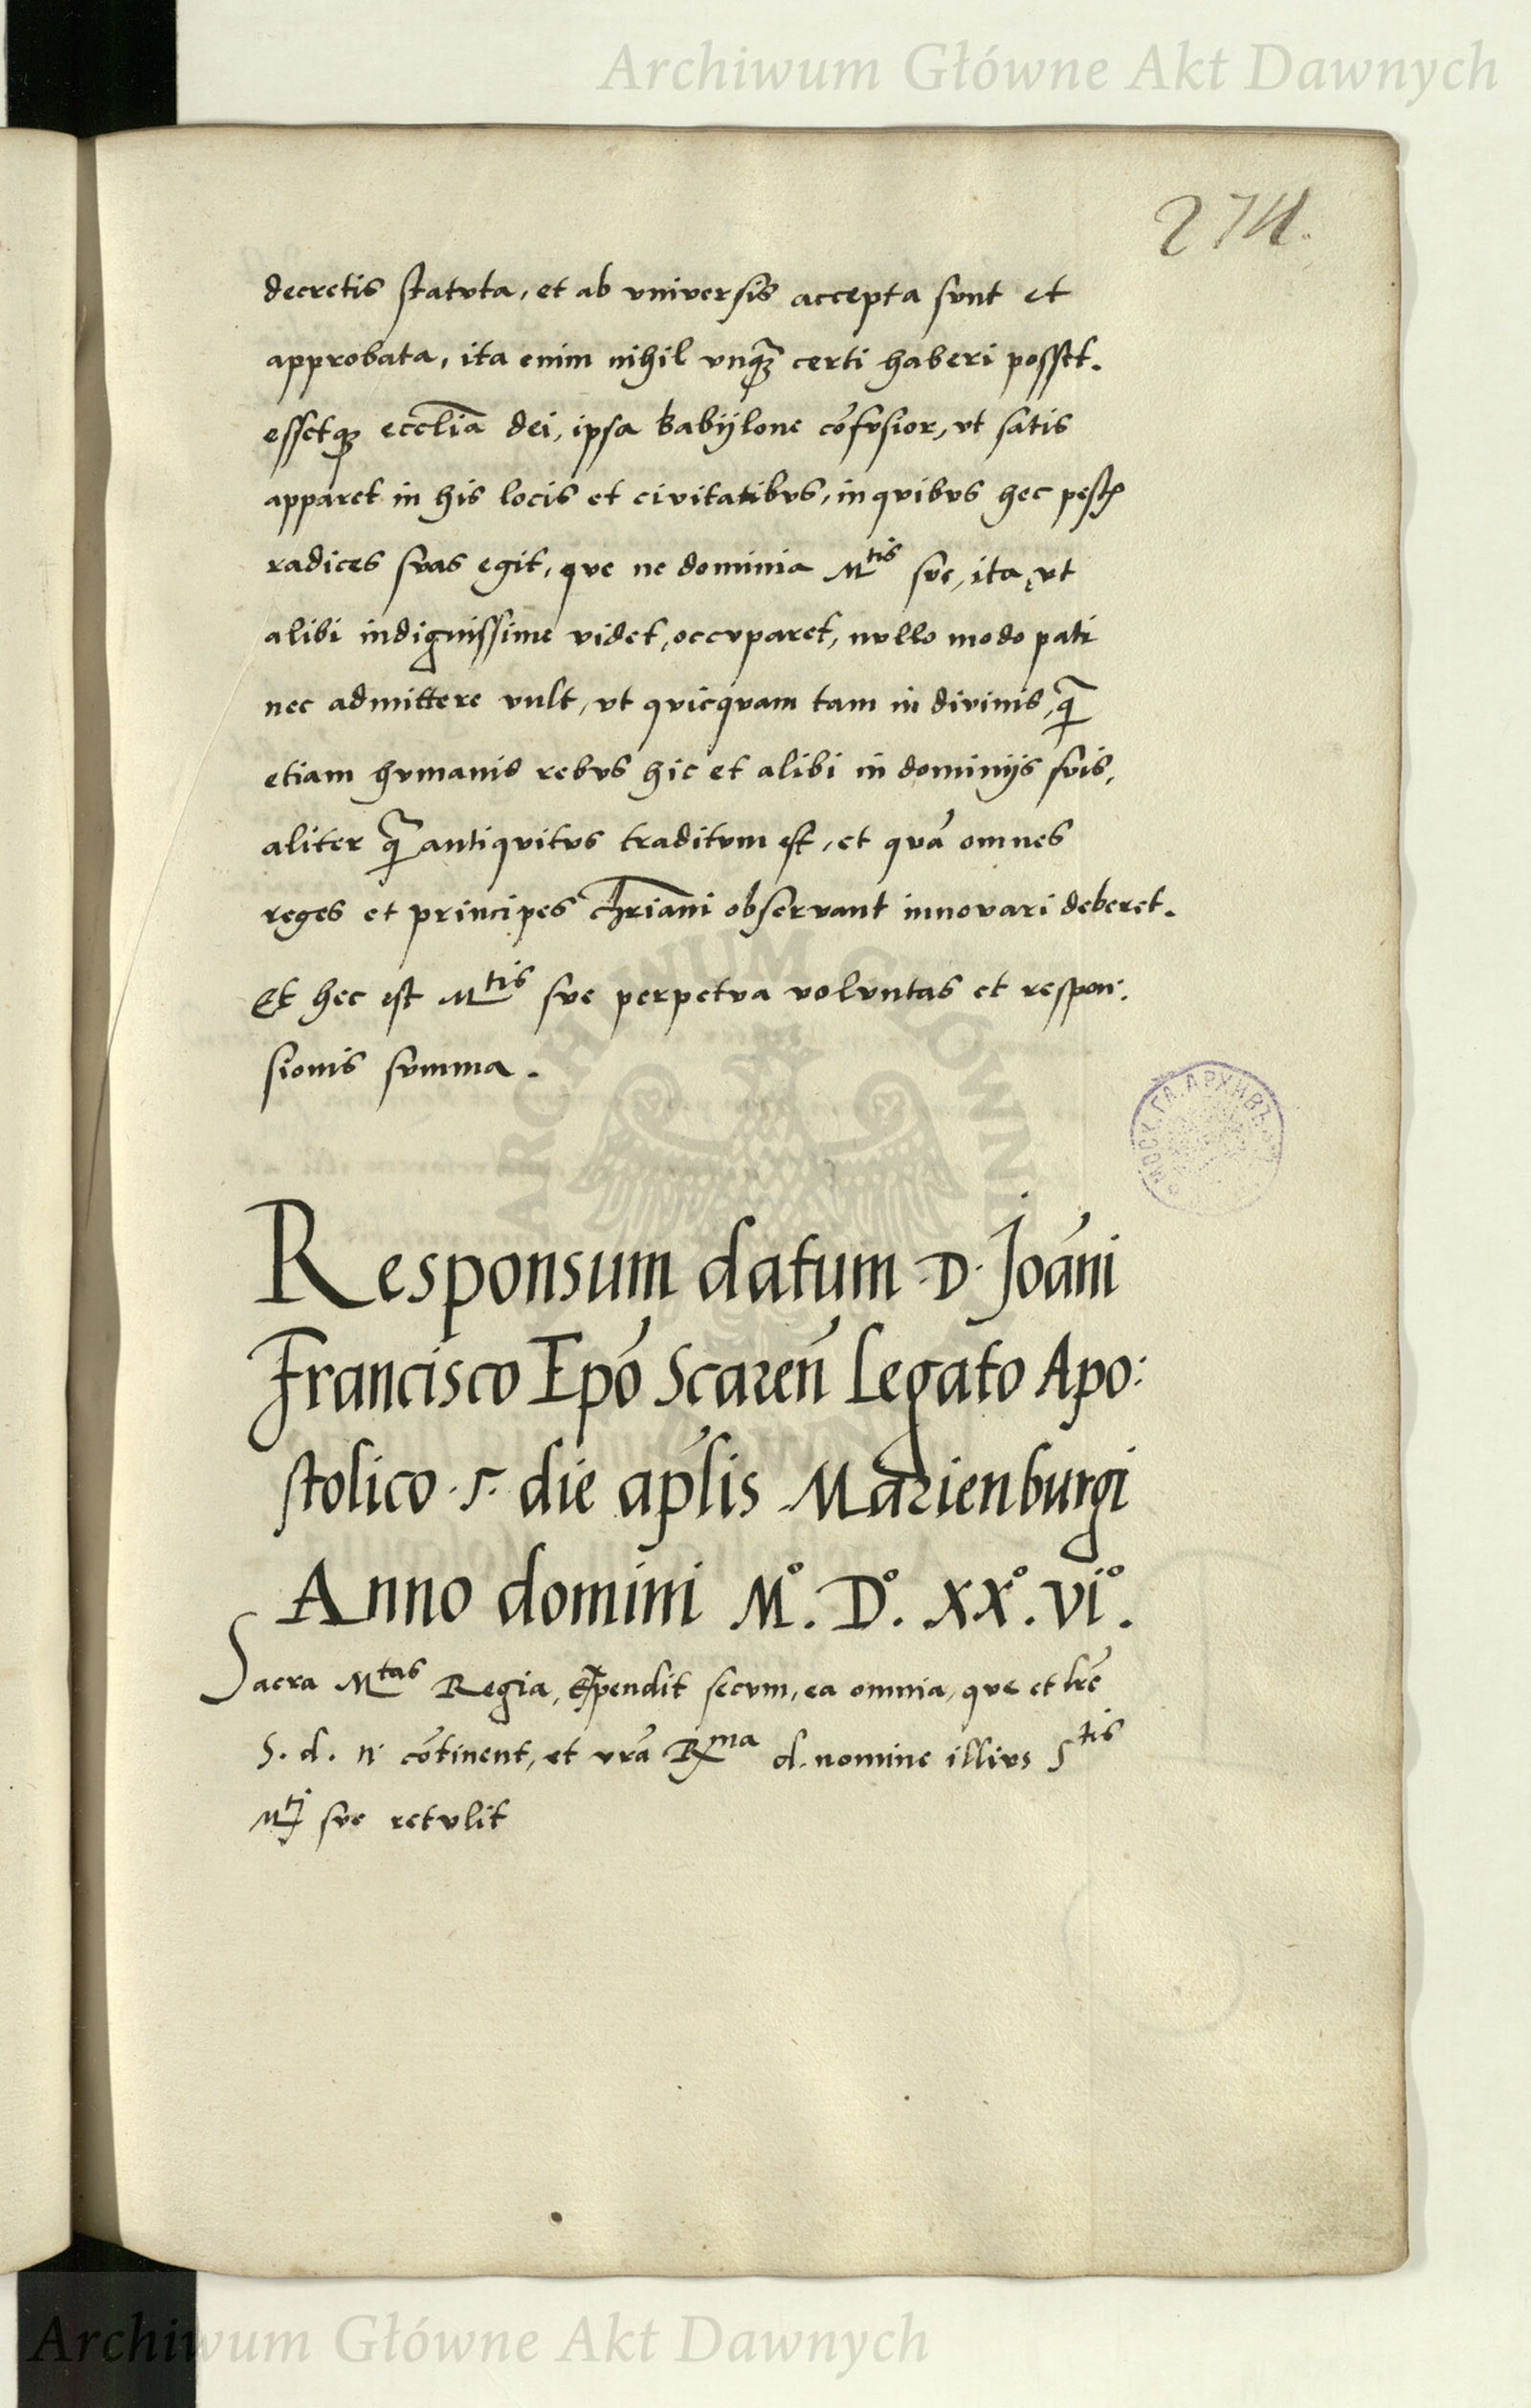 Archiwum Główne Akt Dawnych
274.
decretis statvta, et ab vniversis accepta svnt et
approbata, ita enim nihil vnq̃ȝ certi haberi posset.
essetqȝ eccl̃ia dei, ipsa babijlone cõfvsior, vt satis
apparet in his locis et civitatibvs, in qvibvs hec pest
radices svas egit, qve ne dominia M^tis sve, ita vt
alibi indignissime videt, occvparet, nvllo modo pati
nec admittere vult, vt qvicqvam tam in divinis, q̃
etiam hvmanis rebvs hic et alibi in dominijs svis,
aliter q̃ antiqvitvs traditvm est, et qvã omnes
reges et principes chr̃iani observant innovari deberet.
Et hec est M^tis sve perpetva volvntas et respon:
sionis svmma.
ARCHIWUM GŁÓWNE
МОСК. ГЛ. АРХИВЪ
Responsum datum D. Joãni
Francisco Ep̃o Scareñ Legato Apo:
stolico 5. die ap̃lis Marienburgi
Anno domini M°. D°. XX°. VI°.
Sacra M^tas Regia, Expendit secvm, ea omnia, qve et lr̃e
S. d. n. cõtinent, et vr̃a R^ma d. nomine illivs S^tis
M^ti sve retvlit
Archiwum Główne Akt Dawnych